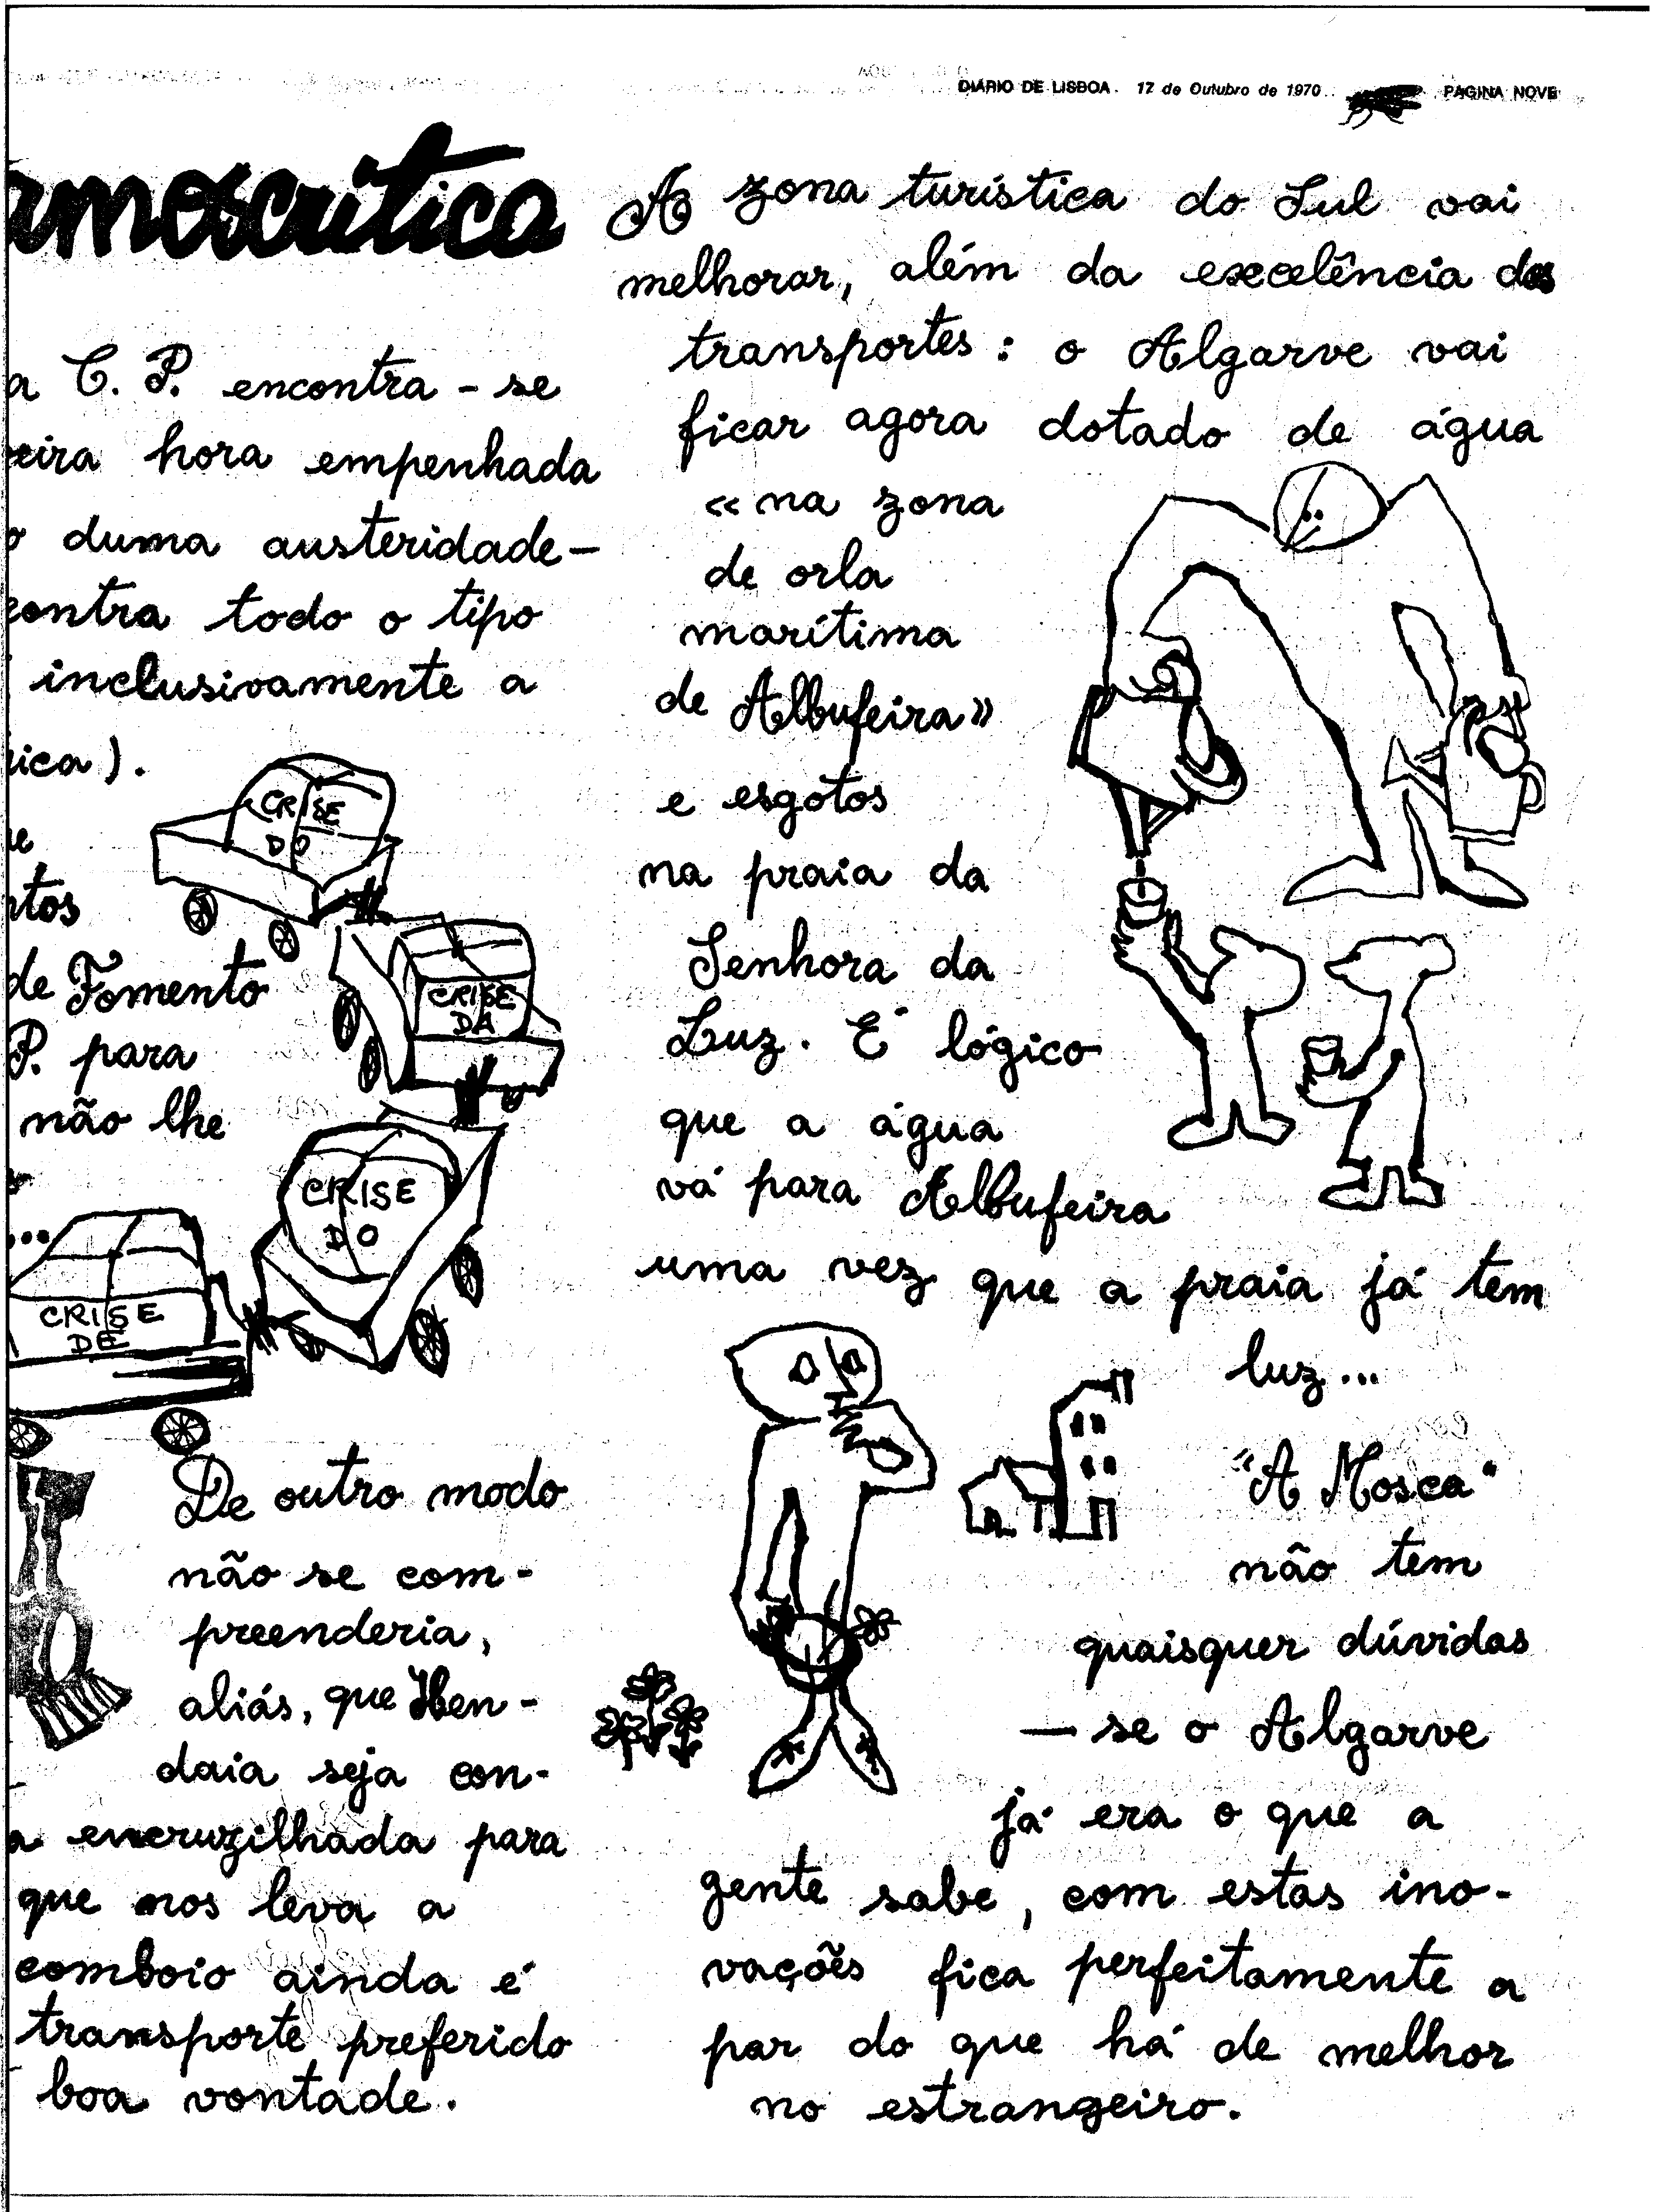 DIÁRIO DE LISBOA. 17 de Outubro de 1970. PÁGINA NOVE
amoscritica
a C. P. encontra-se
eira hora empenhada
o duma austeridade-
contra todo o tipo
inclusivamente a
ica).
ntos
de Fomento
P. para
não lhe
...
CRISE
DO
CRISE
DA
CRISE
DO
CRISE
DE
De outro modo
não se com-
preenderia,
aliás, que Hen-
daia seja con-
a encruzilhada para
que nos leva a
comboio ainda é
transporte preferido
boa vontade.
A zona turística do Sul vai
melhorar, além da excelência dos
transportes: o Algarve vai
ficar agora dotado de água
«na zona
de orla
marítima
de Albufeira»
e esgotos
na praia da
Senhora da
Luz. É lógico
que a água
vá para Albufeira
uma vez que a praia já tem
luz...
"A Mosca"
não tem
quaisquer dúvidas
— se o Algarve
já era o que a
gente sabe, com estas ino-
vações fica perfeitamente a
par do que há de melhor
no estrangeiro.